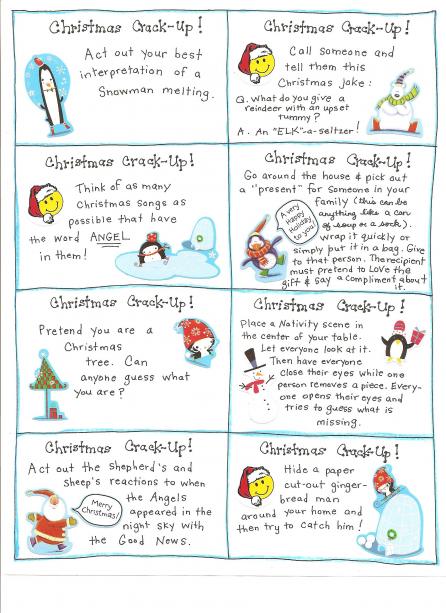 Christmas Crack-Up!
Act out your best
interpretation of a
Snowman melting.
Christmas Crack-Up!
Call someone and
tell them this
Christmas joke:
Q. What do you give a
reindeer with an upset
tummy?
A. An "ELK"-a-seltzer!
Christmas Crack-Up!
Think of as many
Christmas songs as
possible that have
the word ANGEL
in them!
Christmas Crack-Up!
Go around the house & pick out
a "present" for someone in your
family (this can be
anything like a can
of soup or a sock).
wrap it quickly or
simply put it in a bag. Give
to that person. The recipient
must pretend to LOVE the
gift & say a compliment about
it.
A very
Happy
Holiday
to you!
Christmas Crack-Up!
Pretend you are a
Christmas
tree. Can
anyone guess what
you are?
Christmas Crack-Up!
Place a Nativity scene in
the center of your table.
Let everyone look at it.
Then have everyone
close their eyes while one
person removes a piece. Every-
one opens their eyes and
tries to guess what is
missing.
Christmas Crack-Up!
Act out the shepherd's and
sheep's reactions to when
the Angels
appeared in the
night sky with
the Good News.
Merry
Christmas!
Christmas Crack-Up!
Hide a paper
cut-out ginger-
bread man
around your home and
then try to catch him!